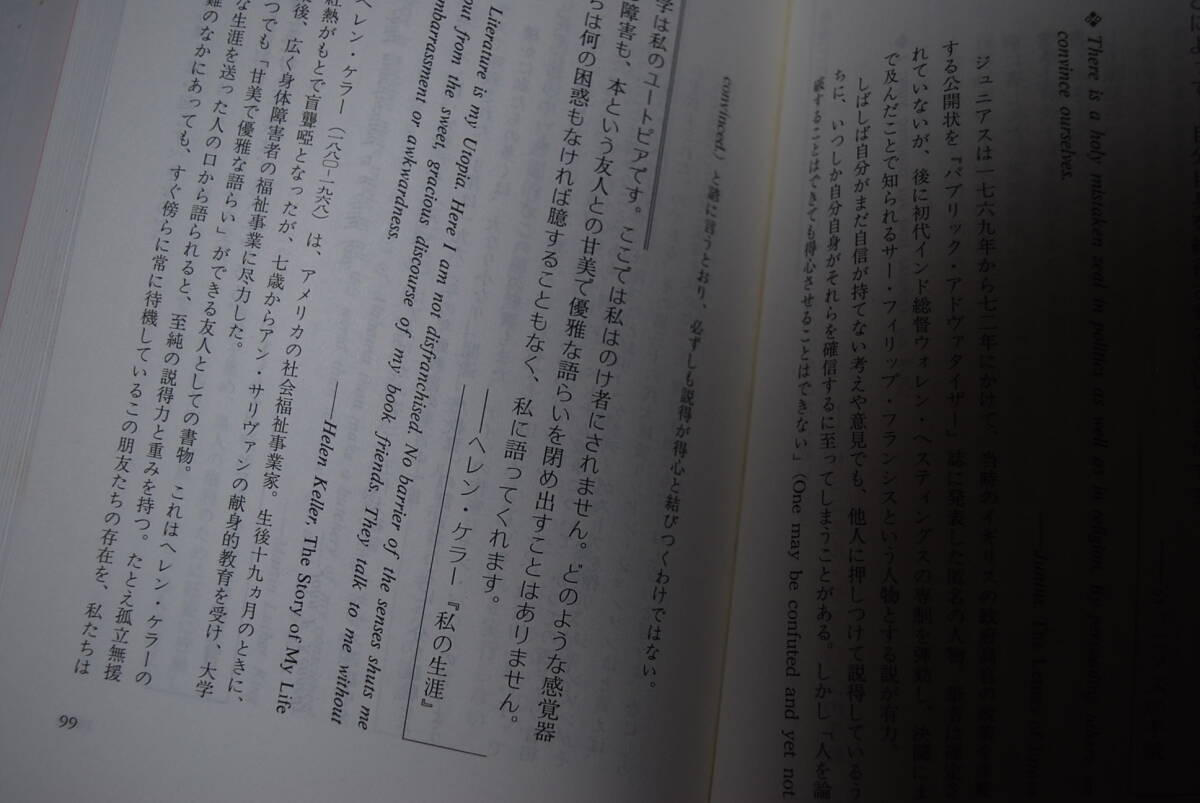 There is a holy mistaken zeal in politics as well as in religion. By persuading others we
convince ourselves.
ジュニアスは一七六九年から七二年にかけて、当時のイギリスの
する公開状を『パブリック・アドヴァタイザー』誌に発表した匿名の人物。
れていないが、後に初代インド総督ウォレン・ヘスティングスの専制を弾劾し、決闘にま
で及んだことで知られるサー・フィリップ・フランシスという人物とする説が有力。
しばしば自分がまだ自信が持てない考えや意見でも、他人に押しつけて説得しているう
ちに、いつしか自分自身がそれらを確信するに至ってしまうことがある。しかし「人を論
破することはできても得心させることはできない」(One may be confuted and yet not
convinced.) と諺に言うとおり、必ずしも説得が得心と結びつくわけではない。
学は私のユートピアです。ここでは私はのけ者にされません。どのような感覚器
障害も、本という友人との甘美で優雅な語らいを閉め出すことはありません。
らは何の困惑もなければ臆することもなく、私に語ってくれます。
――ヘレン・ケラー『私の生涯』
Literature is my Utopia. Here I am not disfranchised. No barrier of the senses shuts me
out from the sweet, gracious discourse of my book friends. They talk to me without
embarrassment or awkwardness.
――Helen Keller, The Story of My Life
ヘレン・ケラー（一八八〇―一九六八）は、アメリカの社会福祉事業家。生後十九ヵ月のときに、
紅熱がもとで盲聾啞となったが、七歳からアン・サリヴァンの献身的教育を受け、大学
後、広く身体障害者の福祉事業に尽力した。
つでも「甘美で優雅な語らい」ができる友人としての書物。これはヘレン・ケラーの
な生涯を送った人の口から語られると、至純の説得力と重みを持つ。たとえ孤立無援
難のなかにあっても、すぐ傍らに常に待機しているこの朋友たちの存在を、私たちは
99